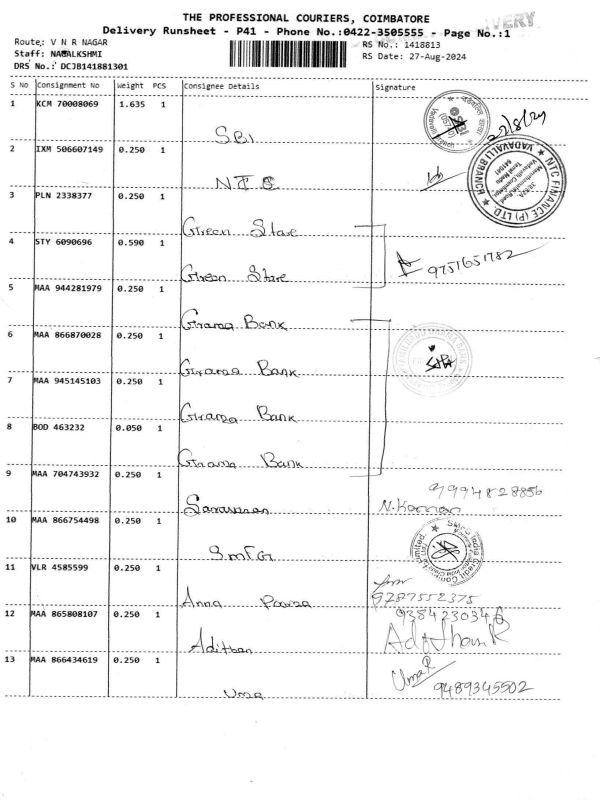 THE PROFESSIONAL COURIERS, COIMBATORE
Delivery Runsheet - P41 - Phone No.:0422-3505555 - Page No.:1
Route,: V N R NAGAR
RS No.: 1418813
Staff: NAGALKSHMI
RS Date: 27-Aug-2024
DRS No.: DCJB141881301
S No Consignment No Weight PCS Consignee Details Signature
1 KCM 70008069 1.635 1 SBI
2 IXM 506607149 0.250 1
NTC FINANCE (P) LTD.
VADAVALLI BRANCH
3 PLN 2338377 0.250 1 Green Stare
4 STY 6090696 0.590 1 Green Stare
9751651782
5 MAA 944281979 0.250 1 Grama Bank
6 MAA 866870028 0.250 1 Grama Bank
7 MAA 945145103 0.250 1 Grama Bank
8 BOD 463232 0.050 1 Grama Bank
9 MAA 704743932 0.250 1 Saravanan
9994828856
N. Kannan
10 MAA 866754498 0.250 1 SMFG
SMFG India Credit Company Limited
11 VLR 4585599 0.250 1 Anna
9287552375
12 MAA 865808107 0.250 1 Adithan
9384230346
13 MAA 866434619 0.250 1 Uma
Uma R
9489345502